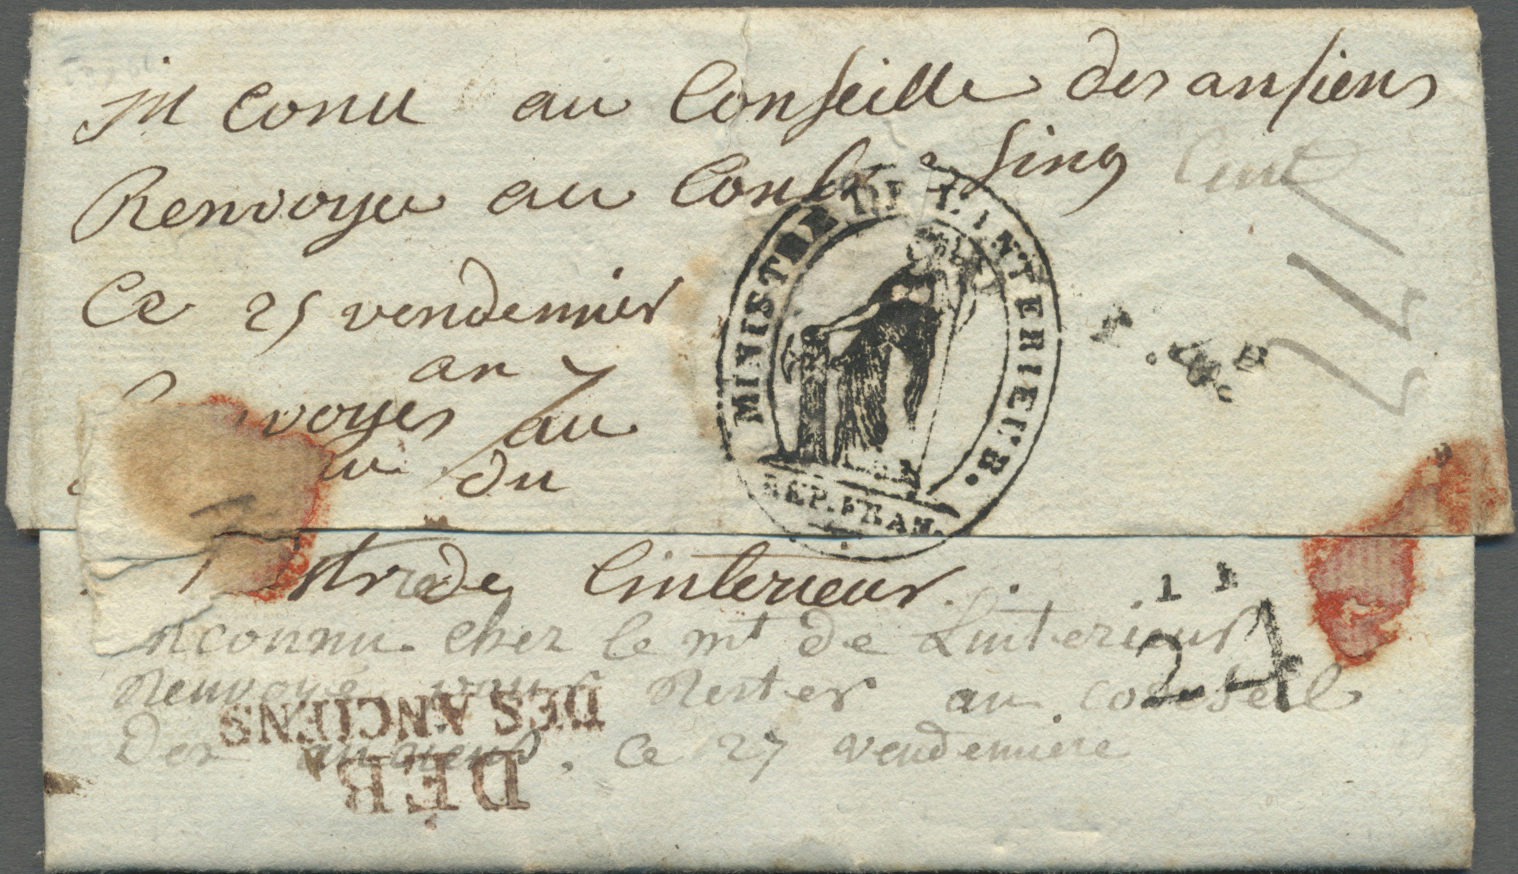 in conu au Conseille des ansiens
Renvoyer au Conse sinq Cent
Ce 25 vendemier
an 7
voyer au
du
MINISTRE DE L'INTERIEUR.
REP. FRAN.
de linterieur
inconnu. cher le mt de Linterieur
Renvoyé pour Rester au conseil
Des anciens. ce 27 vendemiere
24
DÉB.
DES ANCIENS